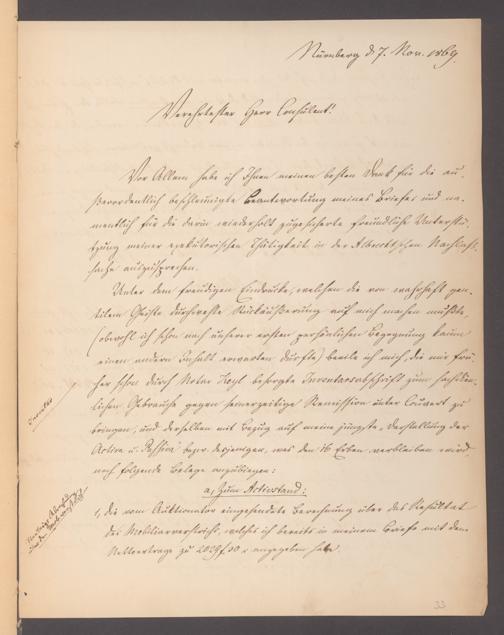 Nürnberg d. 7. Nov. 1869.
Verehrtester Herr Consulent!
Vor Allem habe ich Ihnen meinen besten Dank für die au-
ßerordentlich beschleunigte Beantwortung meines Briefes und na-
mentlich für die darin wiederholt zugesicherte freundliche Unterstü-
tzung meiner exekutorischen Thätigkeit in der Nachlaß-
sache auszusprechen.
Unter dem freudigen Eindrucke, welchen die von wahrhaft gen-
tilem Geiste durchwehte Rückäußerung auf mich machen mußte,
(obwohl ich schon nach unserer ersten persönlichen Begegnung kaum
einen andern Inhalt erwarten durfte) beeile ich mich, die mir frü-
her schon durch Notar besorgte Inventarsabschrift zum
lichen Gebrauche gegen seinerzeitige Remission unter Couvert zu
bringen, und derselben mit Bezug auf meine jüngste „Darstellung der
Activa u. Passiva" bezw. desjenigen, was den 16 Erben verbleiben wird,
noch folgende Belege anzubiegen:
a, Zum Activstand:
1, die vom Auktionator eingesendete Berechnung über das Resultat
des Mobiliarverstrichs, welches ich bereits in meinem Briefe mit dem
Nettoertrage zu 2029 f. 30 x angegeben habe.
33